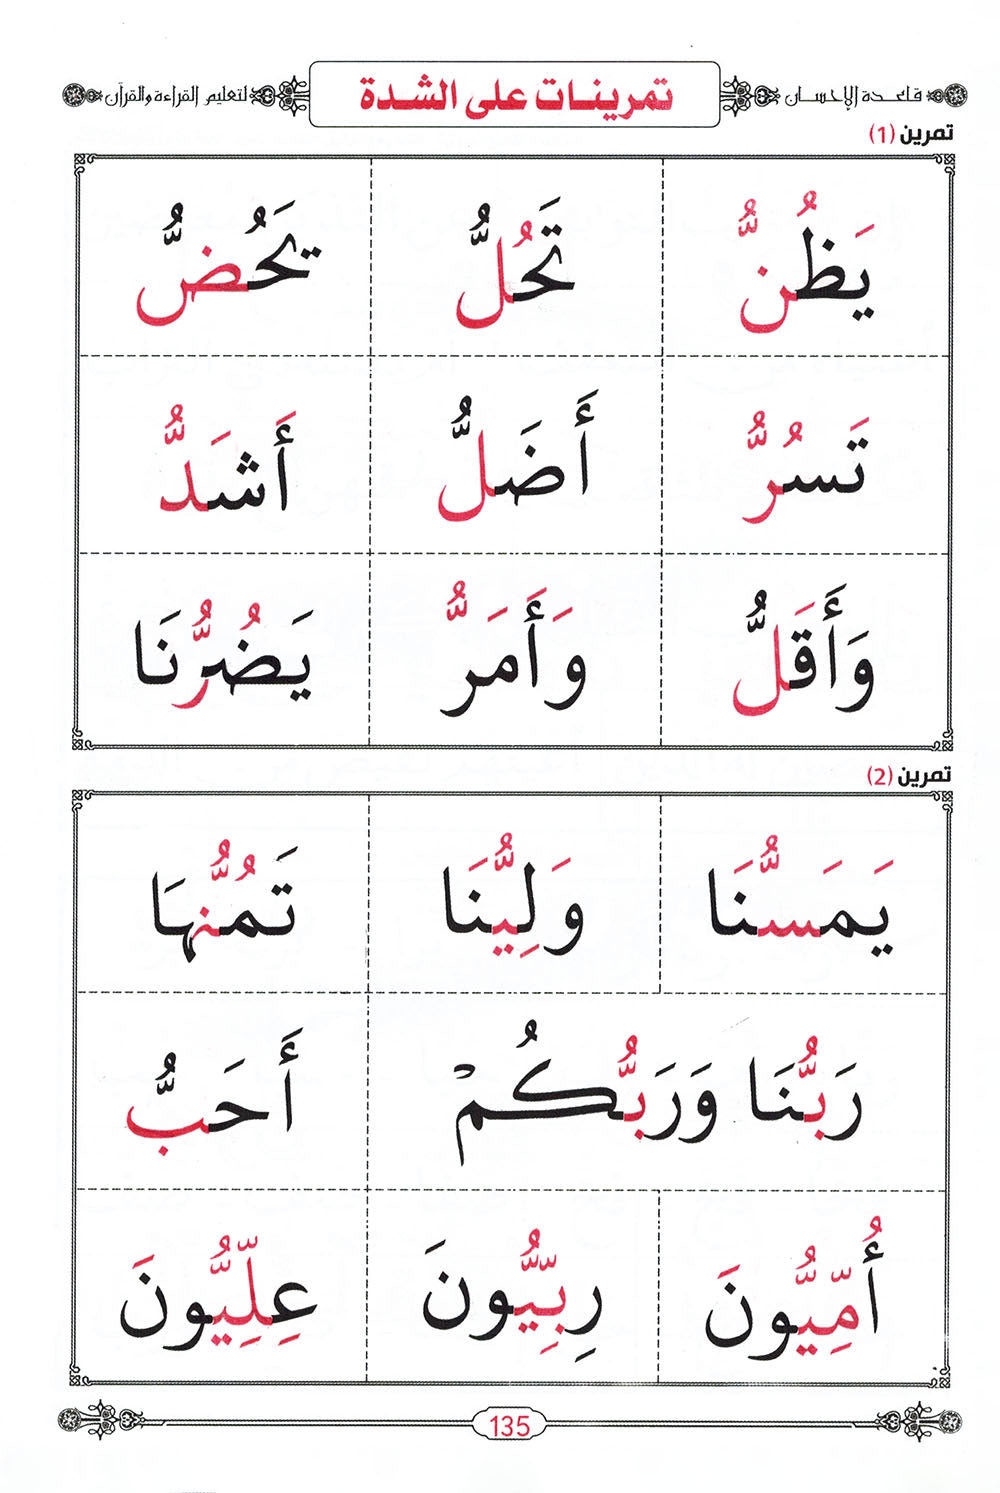 قاعدة الإحسان تمرينات على الشدة لتعليم القراءة والقرآن
تمرين (1)
يَظُنُّ تَحُلُّ يَحُضُّ
تَسُرُّ أَضَلُّ أَشَدُّ
وَأَقَلُّ وَأَمَرُّ يَضُرُّنَا
تمرين (2)
يَمَسُّنَا وَلِيُّنَا تَمُنُّهَا
رَبُّنَا وَرَبُّكُمْ أَحَبُّ
أُمِّيُّونَ رِبِّيُّونَ عِلِّيُّونَ
135